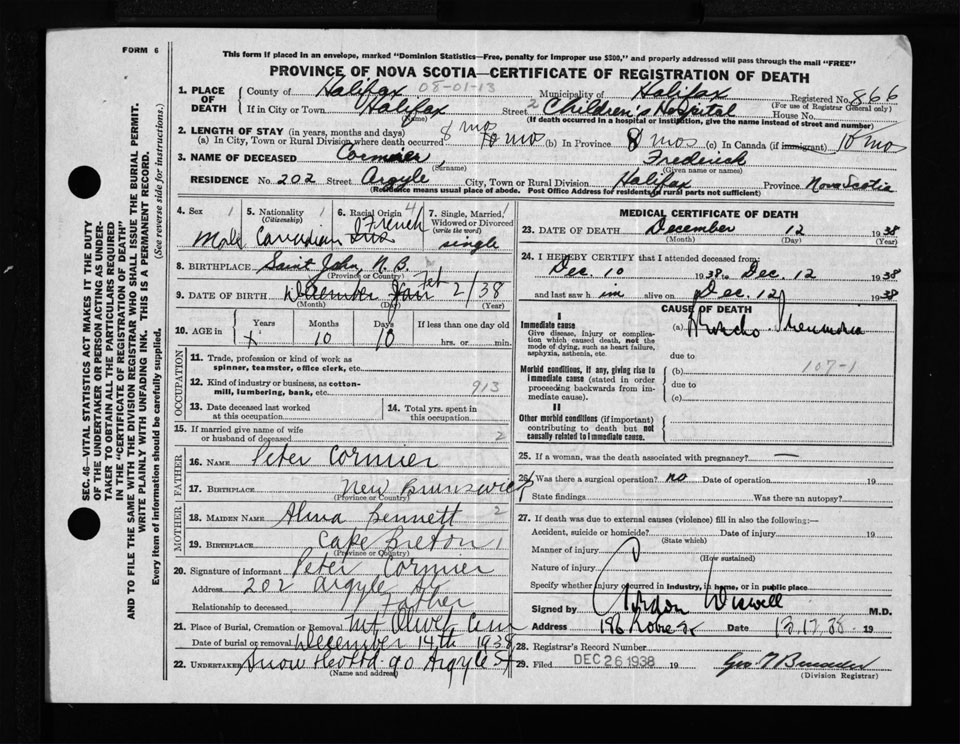 FORM 6
This form if placed in an envelope, marked "Dominion Statistics—Free, penalty for improper use $300," and properly addressed will pass through the mail "FREE"
PROVINCE OF NOVA SCOTIA—CERTIFICATE OF REGISTRATION OF DEATH
1. PLACE OF DEATH { County of Halifax 08-01-13 Municipality of Halifax Registered No. 866
(For use of Registrar General only)
If in City or Town Halifax (Name) Street 2 Children's Hospital House No.
(If death occurred in a hospital or institution, give the name instead of street and number)
2. LENGTH OF STAY (in years, months and days)
(a) In City, Town or Rural Division where death occurred 8 mo 10 mo (b) In Province 8 mos (c) In Canada (if immigrant) 10 mos
3. NAME OF DECEASED Cormier, Frederick
(Surname) (Given name or names)
RESIDENCE No. 202 Street Argyle City, Town or Rural Division Halifax Province Nova Scotia
(Residence means usual place of abode. Post Office Address for residents in rural parts not sufficient)
SEC. 46—VITAL STATISTICS ACT MAKES IT THE DUTY
OF THE UNDERTAKER OR PERSON ACTING AS UNDER-
TAKER TO OBTAIN ALL THE PARTICULARS REQUIRED
IN THE "CERTIFICATE OF REGISTRATION OF DEATH"
AND TO FILE THE SAME WITH THE DIVISION REGISTRAR WHO SHALL ISSUE THE BURIAL PERMIT.
WRITE PLAINLY WITH UNFADING INK. THIS IS A PERMANENT RECORD.
Every item of information should be carefully supplied. (See reverse side for instructions.)
4. Sex 1 Male
5. Nationality 1 (Citizenship) Canadian
6. Racial Origin 4 French
7. Single, Married, 1 Widowed or Divorced (write the word) single
8. BIRTHPLACE Saint John, N.B.
(Province or Country)
9. DATE OF BIRTH December Jan Feb 2/38
(Month) (Day) (Year)
10. AGE in { Years x Months 10 Days 10 If less than one day old hrs. or min.
OCCUPATION
11. Trade, profession or kind of work as spinner, teamster, office clerk, etc.
12. Kind of industry or business, as cotton-mill, lumbering, bank, etc. 913
13. Date deceased last worked at this occupation
14. Total yrs. spent in this occupation
15. If married give name of wife or husband of deceased 2
FATHER
16. NAME Peter Cormier
17. BIRTHPLACE New Brunswick
(Province or Country)
MOTHER
18. MAIDEN NAME Alma Bennett 2
19. BIRTHPLACE Cape Breton 1
(Province or Country)
20. Signature of informant Peter Cormier
Address 202 Argyle St
Relationship to deceased Father
21. Place of Burial, Cremation or Removal Mt Olivet Cem
Date of burial or removal December 14th 1938
22. UNDERTAKER Snow 90 Argyle St
(Name and address)
MEDICAL CERTIFICATE OF DEATH
23. DATE OF DEATH December 12 1938
(Month) (Day) (Year)
24. I HEREBY CERTIFY that I attended deceased from:
Dec. 10 1938 to Dec. 12 1938
and last saw him alive on Dec. 12 1938
CAUSE OF DEATH
I
Immediate cause (a) Broncho Pneumonia
Give disease, injury or complica-
tion which caused death, not the
mode of dying, such as heart failure,
asphyxia, asthenia, etc.
due to
Morbid conditions, if any, giving rise to (b) 107-1
immediate cause (stated in order
proceeding backwards from im-
mediate cause).
due to
(c)
II
Other morbid conditions (if important)
contributing to death but not
causally related to immediate cause.
25. If a woman, was the death associated with pregnancy? —
26. Was there a surgical operation? no Date of operation 19
State findings Was there an autopsy?
27. If death was due to external causes (violence) fill in also the following:—
Accident, suicide or homicide? Date of injury 19
(State which)
Manner of injury
(How sustained)
Nature of injury
Specify whether injury occurred in industry, in home, or in public place
Signed by Gordon Wiswell M.D.
Address 186 Robie St Date 13.12.38 19
28. Registrar's Record Number
29. Filed DEC 26 1938 19
(Division Registrar)